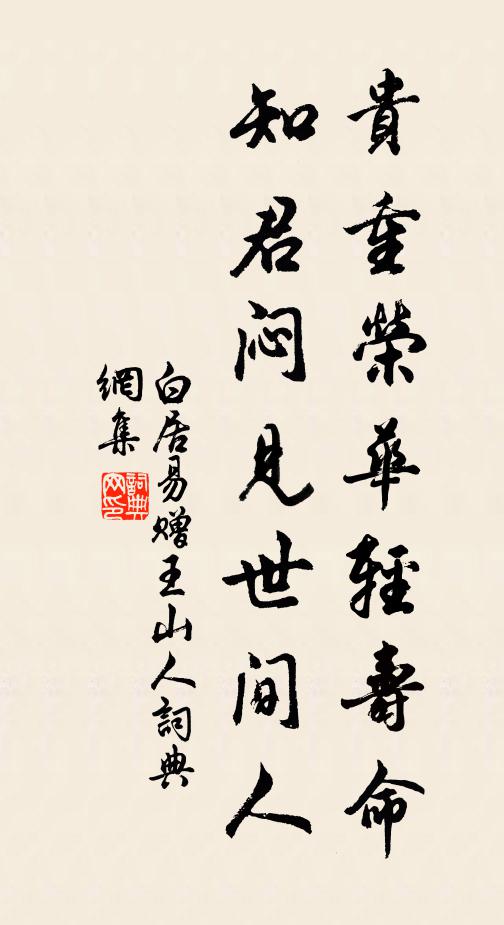 貴重榮華輕壽命
知君悶見世間人
白居易贈王山人詞典
網集
詞典
网印